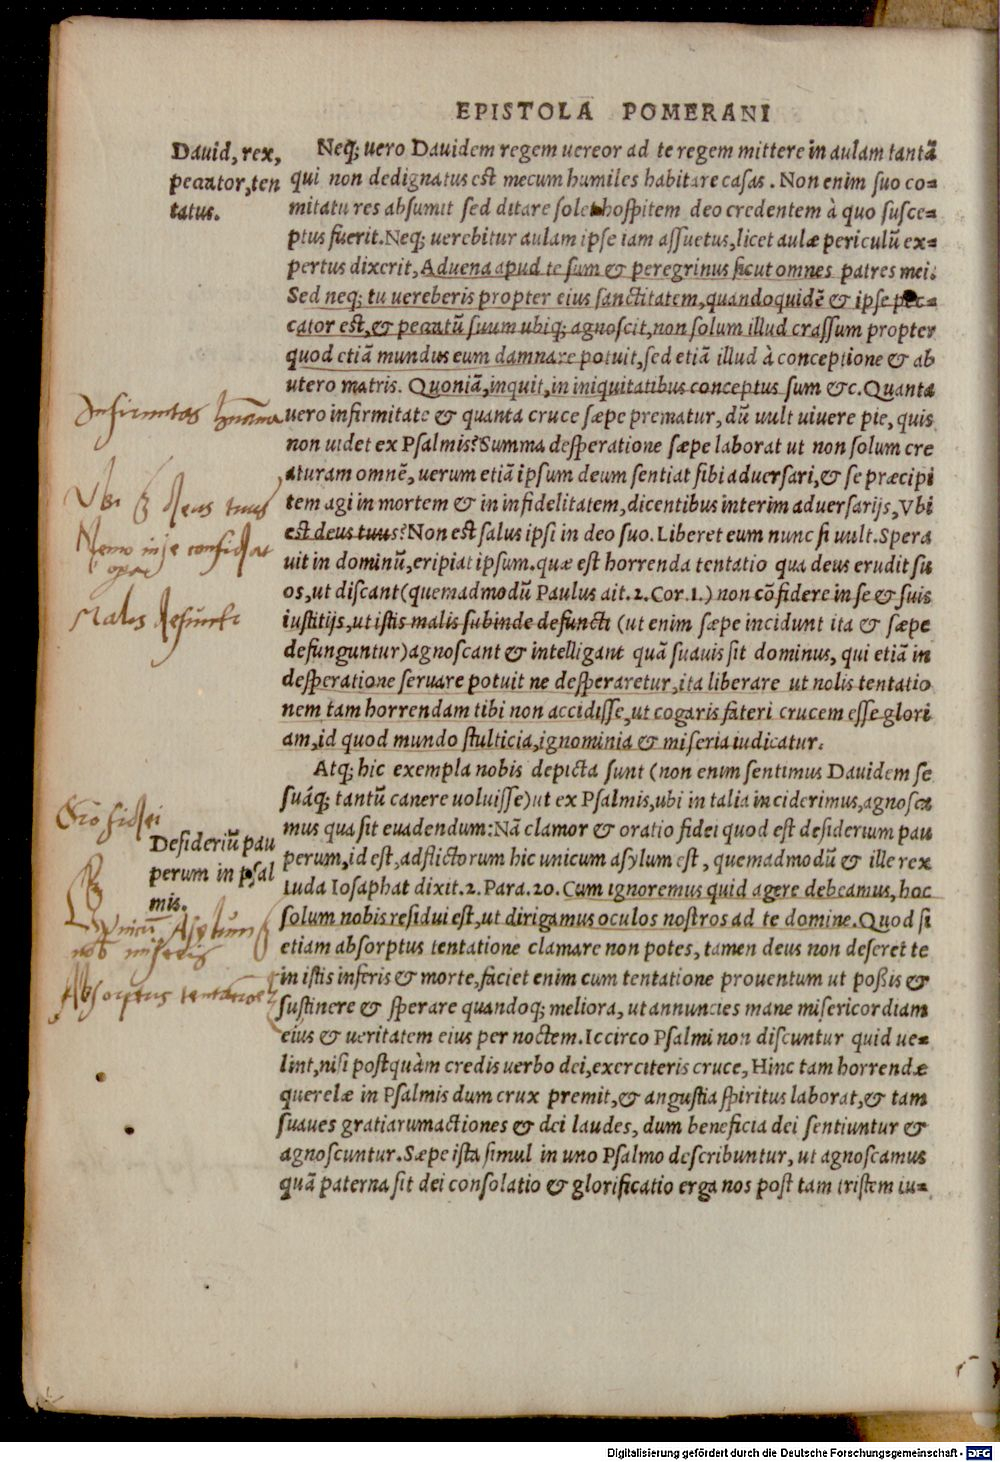 EPISTOLA POMERANI
Dauid, rex,
peccator, ten
tatus.
Neq; uero Dauidem regem uereor ad te regem mittere in aulam tantā
qui non dedignatus est mecum humiles habitare casas. Non enim suo co=
mitatu res absumit sed ditare solet hospitem deo credentem à quo susce=
ptus fuerit. Neq; uerebitur aulam ipse iam assuetus, licet aulæ periculū ex=
pertus dixerit, Aduena apud te sum & peregrinus sicut omnes patres mei.
Sed neq; tu uereberis propter eius sanctitatem, quandoquidē & ipse pec=
cator est, & peccatū suum ubiq; agnoscit, non solum illud crassum propter
quod etiā mundus eum damnare potuit, sed etiā illud à conceptione & ab
utero matris. Quoniā, inquit, in iniquitatibus conceptus sum &c. Quanta
uero infirmitate & quanta cruce sæpe prematur, dū uult uiuere pie, quis
non uidet ex Psalmis? Summa desperatione sæpe laborat ut non solum cre
aturam omnē, uerum etiā ipsum deum sentiat sibi aduersari, & se præcipi
tem agi in mortem & in infidelitatem, dicentibus interim aduersarijs, Vbi
est deus tuus? Non est salus ipsi in deo suo. Liberet eum nunc si uult. Spera
uit in dominū, eripiat ipsum. quæ est horrenda tentatio qua deus erudit su
os, ut discant (quemadmodū Paulus ait. 2. Cor. 1.) non cōfidere in se & suis
iustitijs, ut istis malis subinde defuncti (ut enim sæpe incidunt ita & sæpe
defunguntur) agnoscant & intelligant quā suauis sit dominus, qui etiā in
desperatione seruare potuit ne desperaretur, ita liberare ut nolis tentatio
nem tam horrendam tibi non accidisse, ut cogaris fateri crucem esse glori
am, id quod mundo stulticia, ignominia & miseria iudicatur.
Infirmitas humana
Vbi est deus tuus
Nemo in se confidat
Malis defuncti
Atq; hic exempla nobis depicta sunt (non enim sentimus Dauidem se
suáq; tantū canere uoluisse) ut ex Psalmis, ubi in talia inciderimus, agnosca
mus qua sit euadendum: Nā clamor & oratio fidei quod est desiderium pau
perum, id est, adflictorum hic unicum asylum est, quemadmodū & ille rex
Iuda Iosaphat dixit. 2. Para. 20. Cum ignoremus quid agere debeamus, hoc
solum nobis residui est, ut dirigamus oculos nostros ad te domine. Quod si
etiam absorptus tentatione clamare non potes, tamen deus non deseret te
in istis inferis & morte, faciet enim cum tentatione prouentum ut poßis &
sustinere & sperare quandoq; meliora, ut annuncies mane misericordiam
eius & ueritatem eius per noctem. Iccirco Psalmi non discuntur quid ue=
lint, nisi postquàm credis uerbo dei, exerciteris cruce, Hinc tam horrendæ
querelæ in Psalmis dum crux premit, & angustia spiritus laborat, & tam
suaues gratiarumactiones & dei laudes, dum beneficia dei sentiuntur &
agnoscuntur. Sæpe ista simul in uno Psalmo describuntur, ut agnoscamus
quā paterna sit dei consolatio & glorificatio erga nos post tam tristem iu=
Oratio fidei
Desideriū pau
perum in psal
mis.
Vnicū Asylum
miseris
Absorptus tentatione
Digitalisierung gefördert durch die Deutsche Forschungsgemeinschaft - DFG